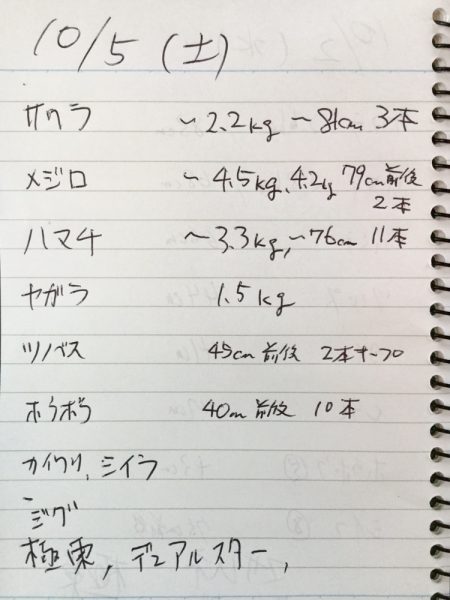 10/5 (土)
サワラ ~2.2kg ~81cm 3本
メジロ ~4.5kg、4.2kg 79cm前後
2本
ハマチ ~3.3kg、~76cm 11本
ヤガラ 1.5kg
ツノバス 45cm前後 2本
ホウボウ 40cm前後 10本
カイワリ、シイラ
ジグ
極東、デュアルスター、